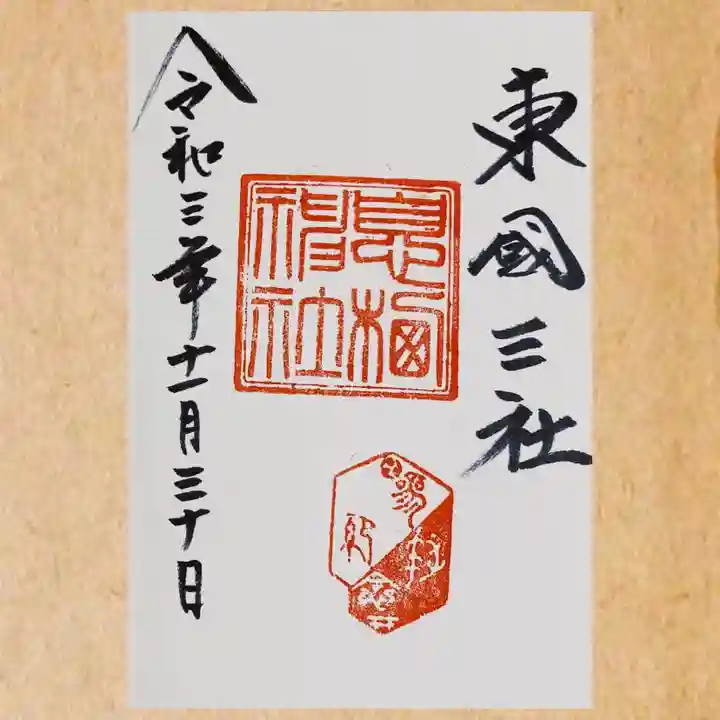 東國三社
息栖神社
令和三年十一月三十日